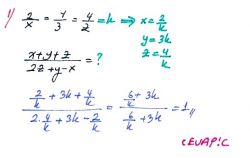 1) 2/x = y/3 = 4/z = k ⟹ x = 2/k
y = 3k
z = 4/k
(x+y+z)/(2z+y-x) = ?
(2/k + 3k + 4/k)/(2·4/k + 3k - 2/k) = (6/k + 3k)/(6/k + 3k) = 1 //
CEVAP: C